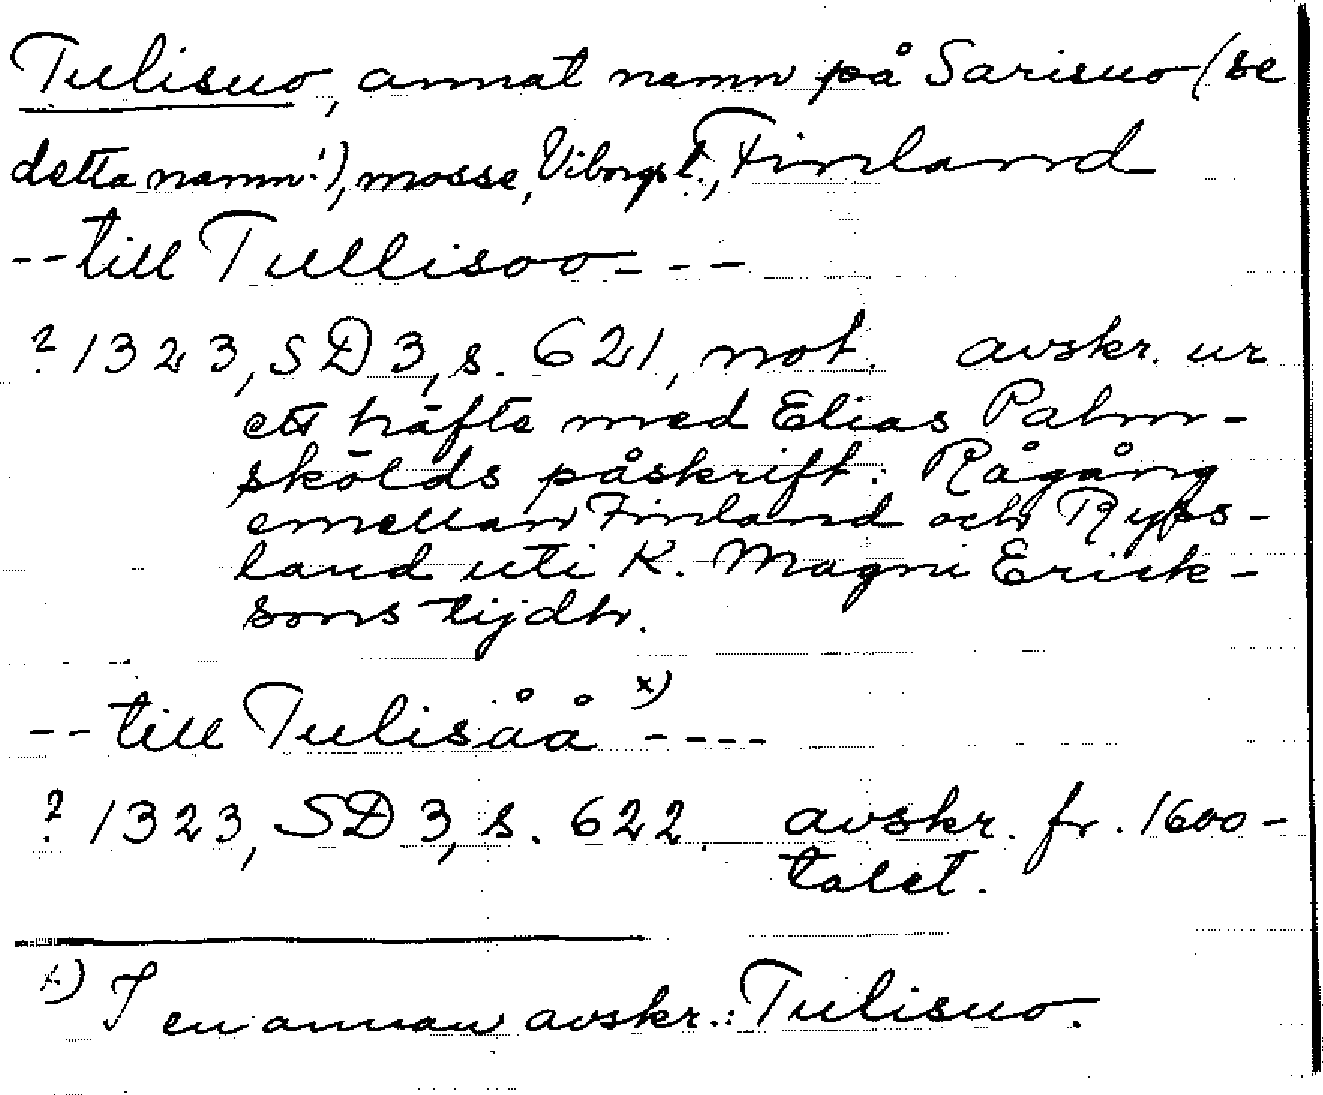 Tulisuo, annat namn på Sarisuo (se
detta namn!), mosse, Viborgs l., Finland
-- till Tullisoo - - -
? 1323, SD 3, s. 621, not. avskr. ur
ett häfte med Elias Palm-
skölds påskrift: Rågång
emellan Finland och Ryss-
land uti K. Magni Erick-
sons tijdh.
-- till Tulisåå x) ----
? 1323, SD 3, s. 622. avskr. fr. 1600-
talet.
x) I en annan avskr.: Tulisuo.